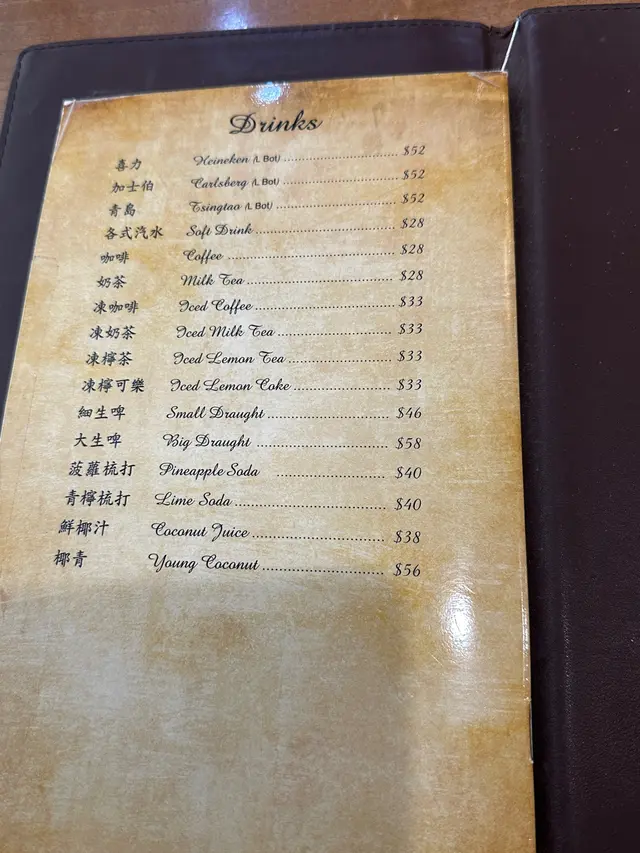 Drinks
喜力 Heineken (L Bot) $52
加士伯 Carlsberg (L Bot) $52
青島 Tsingtao (L Bot) $52
各式汽水 Soft Drink $28
咖啡 Coffee $28
奶茶 Milk Tea $28
凍咖啡 Iced Coffee $33
凍奶茶 Iced Milk Tea $33
凍檸茶 Iced Lemon Tea $33
凍檸可樂 Iced Lemon Coke $33
細生啤 Small Draught $46
大生啤 Big Draught $58
菠蘿梳打 Pineapple Soda $40
青檸梳打 Lime Soda $40
鮮椰汁 Coconut Juice $38
椰青 Young Coconut $56